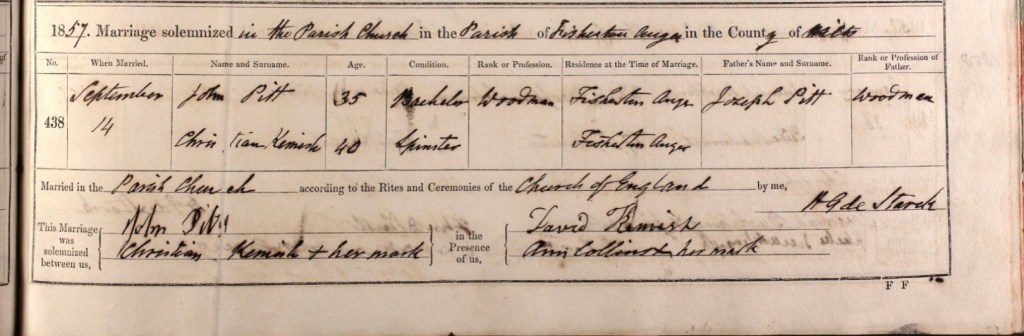 1857. Marriage solemnized in the Parish Church in the Parish of Fisherton Anger in the County of Wilts
No. When Married. Name and Surname. Age. Condition. Rank or Profession. Residence at the Time of Marriage. Father's Name and Surname. Rank or Profession of Father.
September John Pitt 35 Bachelor Woodman Fisherton Anger Joseph Pitt Woodman
438 14
Christian Kemish 40 Spinster Fisherton Anger
Married in the Parish Church according to the Rites and Ceremonies of the Church of England by me,
H G de Starck
This Marriage was solemnized between us, John Pitt in the Presence of us, David Kemish
Christian Kemish + her mark Ann Collins + her mark
F F